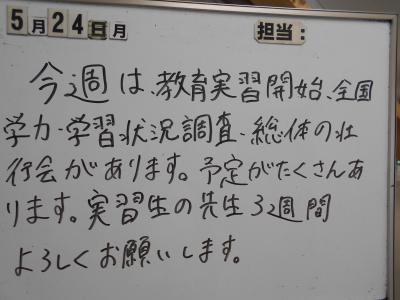 5月24日月 担当：
今週は、教育実習開始、全国
学力・学習状況調査、総体の壮
行会があります。予定がたくさんあ
ります。実習生の先生3週間
よろしくお願いします。